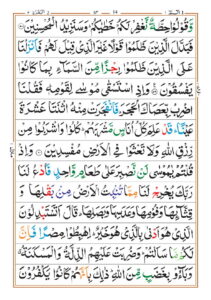 وَّقُوْلُوْا حِطَّةٌ نَّغْفِرْ لَكُمْ خَطٰيٰكُمْ ؕ وَسَنَزِيْدُ الْمُحْسِنِيْنَ
فَبَدَّلَ الَّذِيْنَ ظَلَمُوْا قَوْلًا غَيْرَ الَّذِيْ قِيْلَ لَهُمْ فَاَنْزَلْنَا
عَلَى الَّذِيْنَ ظَلَمُوْا رِجْزًا مِّنَ السَّمَآءِ بِمَا كَانُوْا
يَفْسُقُوْنَ وَاِذِ اسْتَسْقٰى مُوْسٰى لِقَوْمِهٖ فَقُلْنَا
اضْرِبْ بِّعَصَاكَ الْحَجَرَ ؕ فَانْفَجَرَتْ مِنْهُ اثْنَتَا عَشْرَةَ
عَيْنًا ؕ قَدْ عَلِمَ كُلُّ اُنَاسٍ مَّشْرَبَهُمْ ؕ كُلُوْا وَاشْرَبُوْا مِنْ
رِّزْقِ اللّٰهِ وَلَا تَعْثَوْا فِى الْاَرْضِ مُفْسِدِيْنَ وَاِذْ
قُلْتُمْ يٰمُوْسٰى لَنْ نَّصْبِرَ عَلٰى طَعَامٍ وَّاحِدٍ فَادْعُ لَنَا
رَبَّكَ يُخْرِجْ لَنَا مِمَّا تُنْۢبِتُ الْاَرْضُ مِنْۢ بَقْلِهَا وَ
قِثَّآئِهَا وَفُوْمِهَا وَعَدَسِهَا وَبَصَلِهَا ؕ قَالَ اَتَسْتَبْدِلُوْنَ
الَّذِيْ هُوَ اَدْنٰى بِالَّذِيْ هُوَ خَيْرٌ ؕ اِهْبِطُوْا مِصْرًا فَاِنَّ
لَكُمْ مَّا سَاَلْتُمْ ؕ وَضُرِبَتْ عَلَيْهِمُ الذِّلَّةُ وَالْمَسْكَنَةُ
وَبَآءُوْ بِغَضَبٍ مِّنَ اللّٰهِ ؕ ذٰلِكَ بِاَنَّهُمْ كَانُوْا يَكْفُرُوْنَ